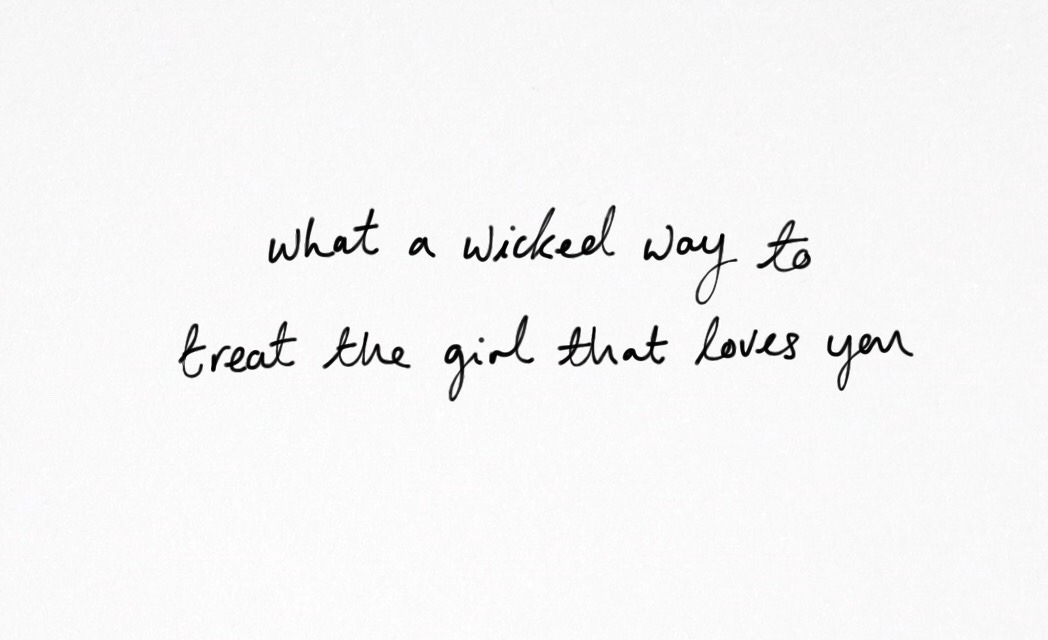 what a wicked way to
treat the girl that loves you